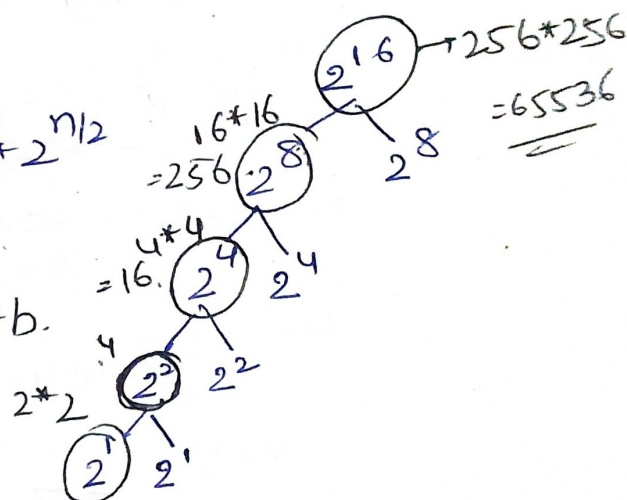 2^16 → 256*256
=65536
* 2^n/2
16*16
=256 2^8 2^8
4*4
=16. 2^4 2^4
b.
4
2^2 2^2
2*2
2^1 2^1